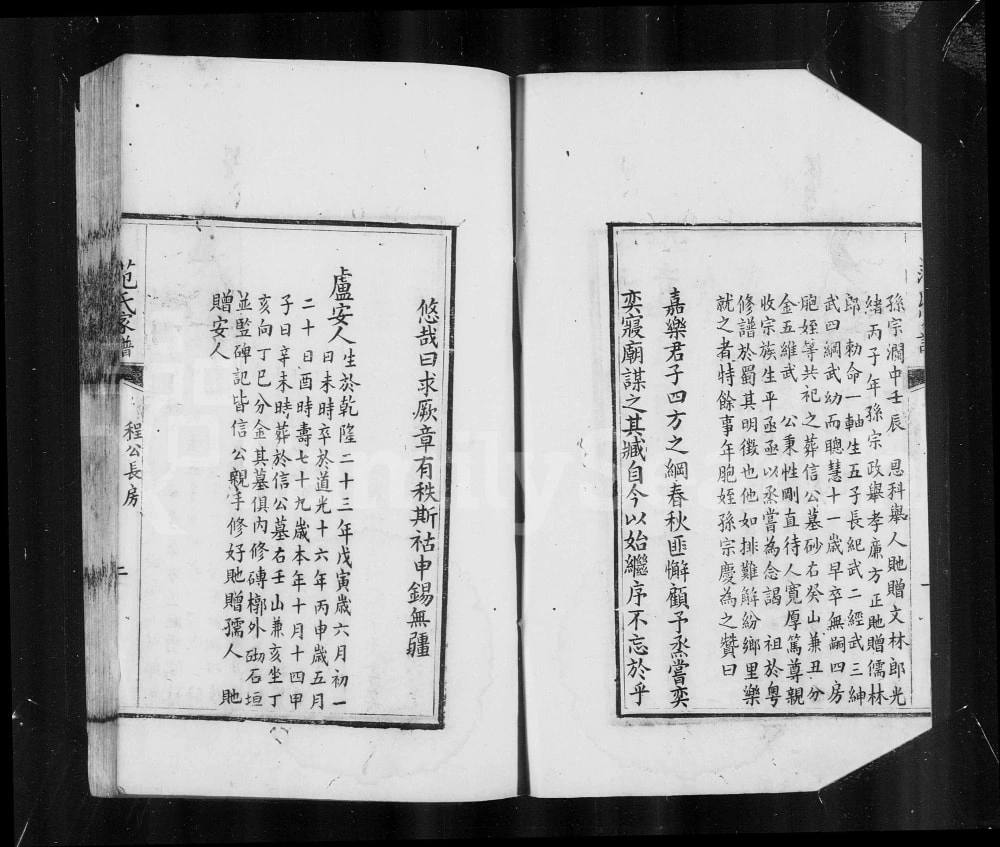 孫宗瀾中壬辰　恩科舉人貤贈文林郎光
緒丙子年孫宗政舉孝廉方正貤贈儒林
郎　勅命一軸生五子長紀武二經武三紳
武四綱武幼而聰慧十一歲早卒無嗣四房
胞姪等共祀之葬信公墓砂右癸山兼丑分
金五維武　公秉性剛直待人寬厚篤尊親
收宗族生平亟亟以烝嘗為念謁　祖於粵
修譜於蜀其明徵也他如排難解紛鄉里樂
就之者特餘事年胞姪孫宗慶為之贊曰
嘉樂君子四方之綱春秋匪懈顧予烝嘗奕
奕寢廟謀之其臧自今以始繼序不忘於乎
悠哉曰求厥章有秩斯祜申錫無疆
盧安人生於乾隆二十三年戊寅歲六月初一
日未時卒於道光十六年丙申歲五月
二十日酉時壽七十九歲本年十月十四甲
子日辛未時葬於信公墓右壬山兼亥坐丁
亥向丁巳分金其墓俱內修磚槨外砌石垣
並監碑記皆信公親手修好貤贈孺人　貤
贈安人
范氏家譜
程公長房
二